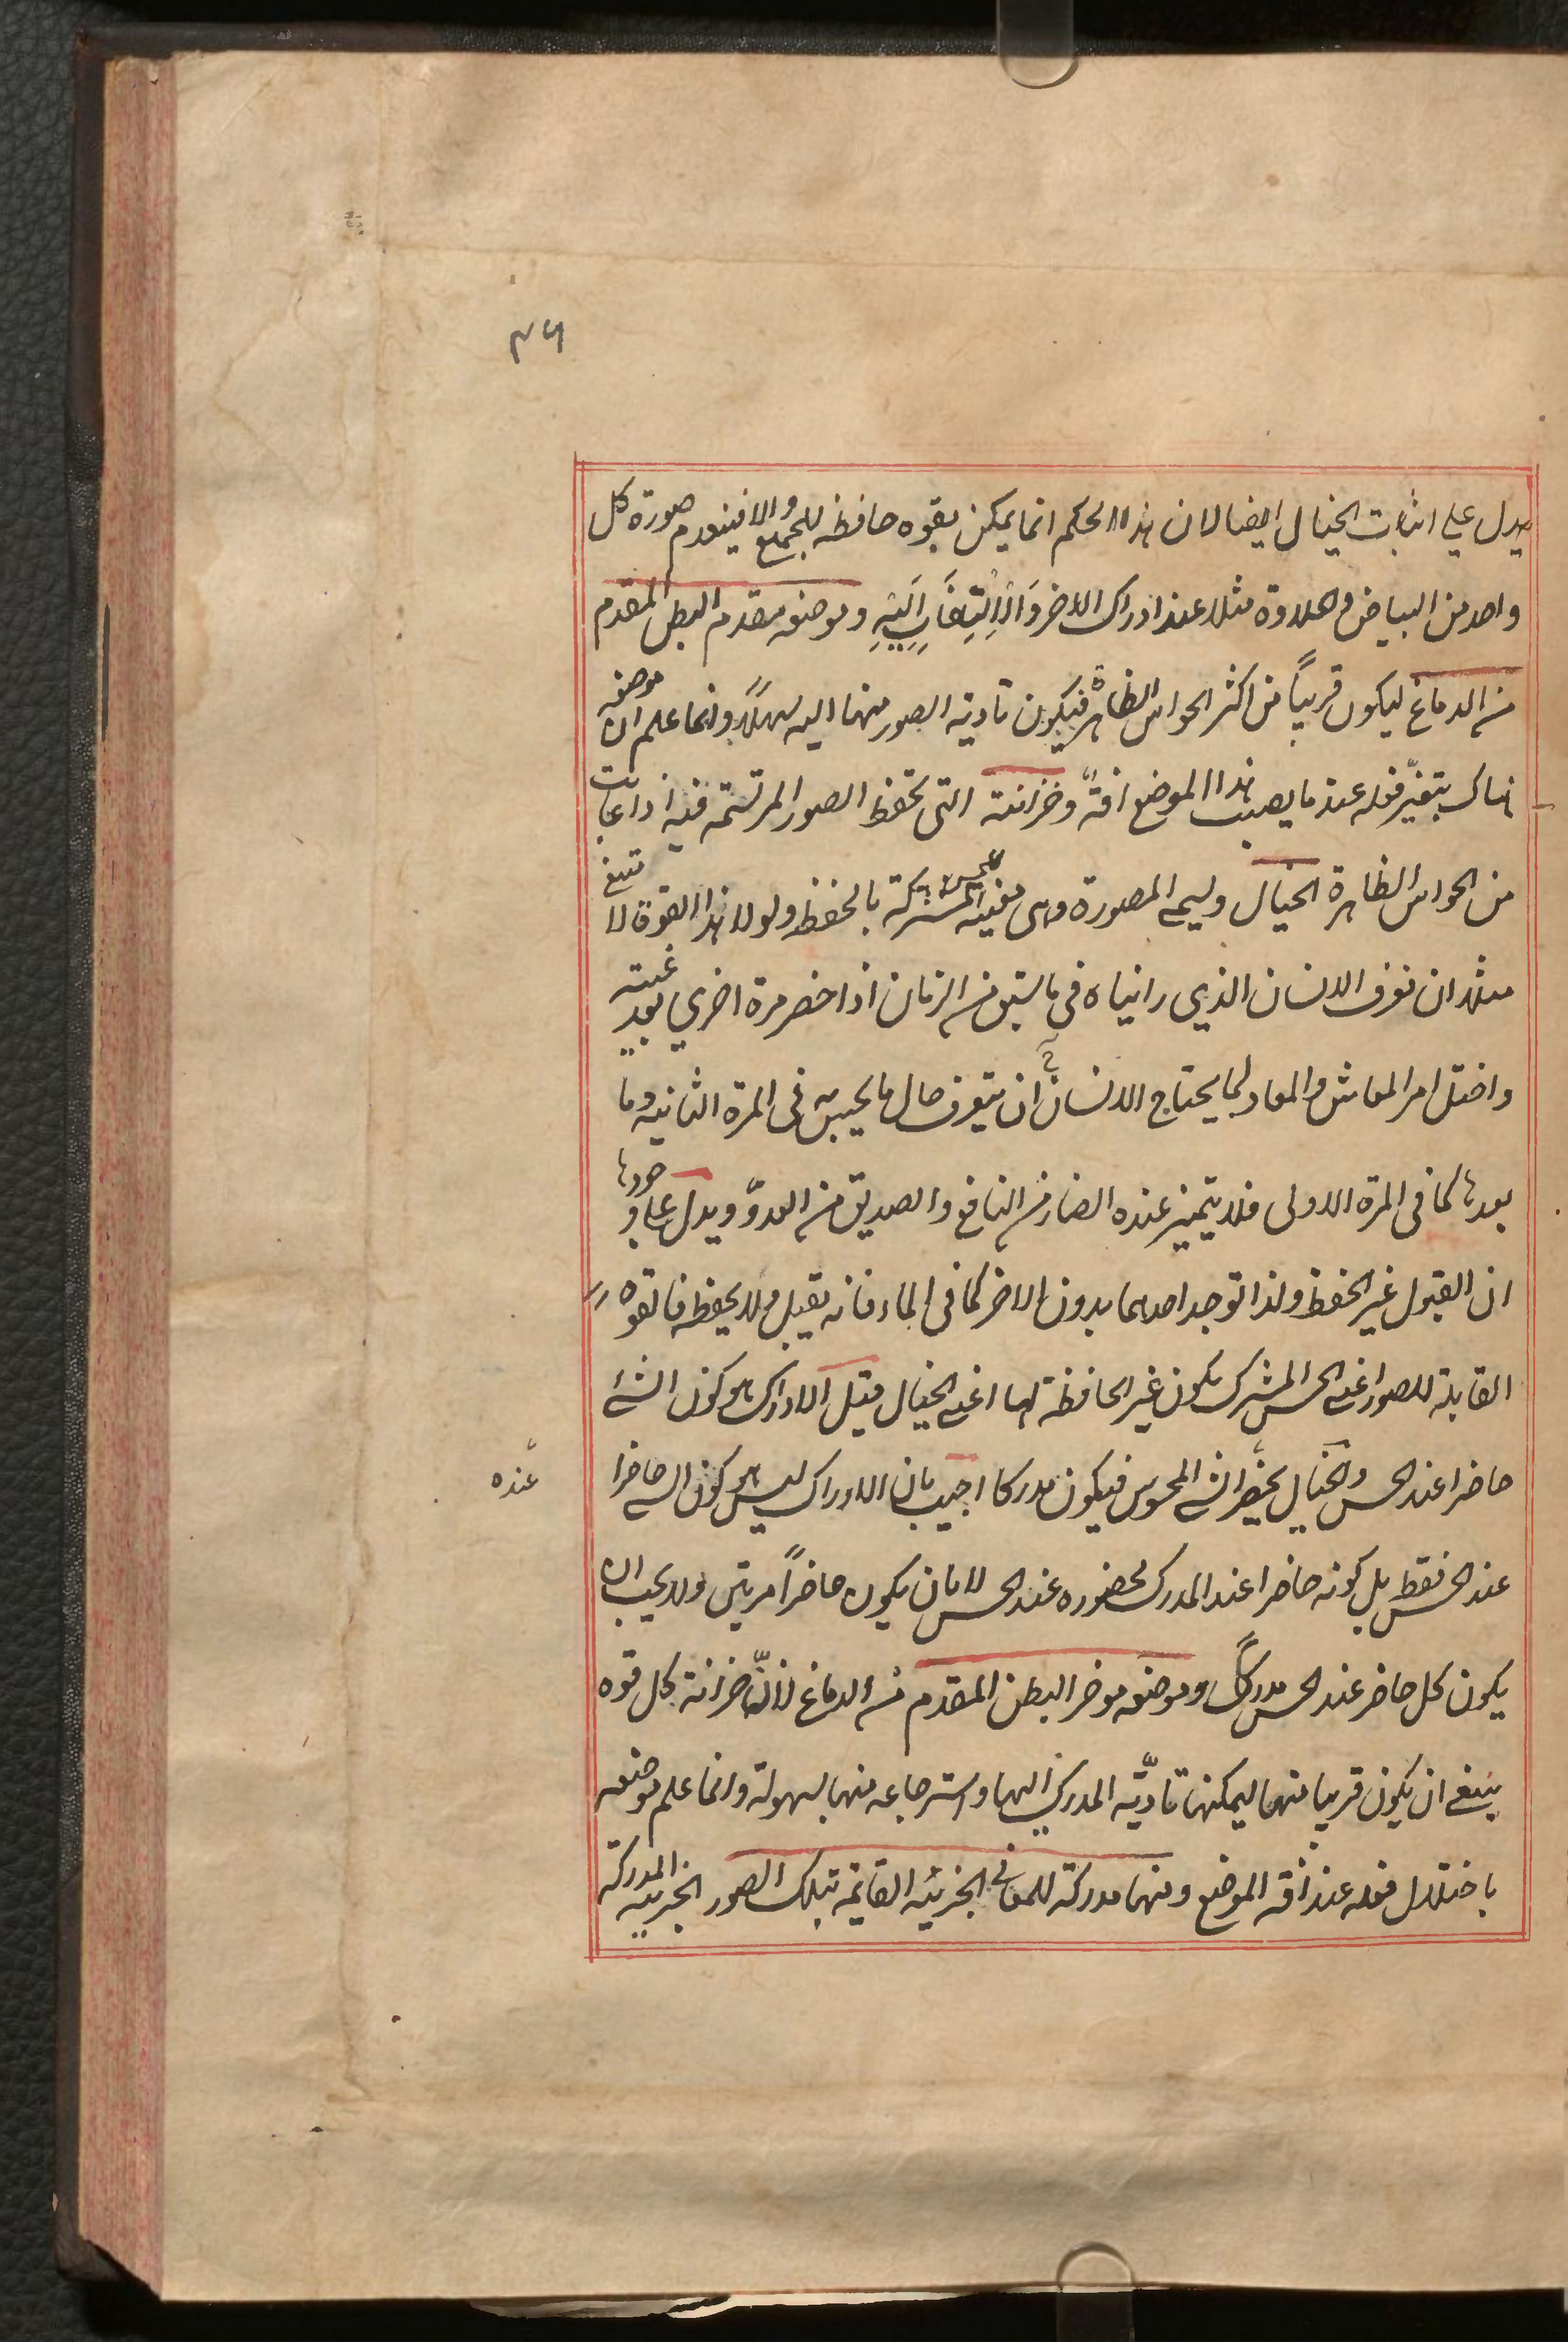 ٣٦
يدل علي اثبات الخيال ايضا لان هذا الحكم انما يمكن بقوه حافظه للجميع والا فينعدم صورة كل
واحد من البياض والحلاوة مثلا عند ادراك الاخر والالتفات اليه وموضعه مقدم البطن المقدم
من الدماغ ليكون قريباً من اكثر الحواس الظاهرة فيكون تادية الصور منها اليه سهلاً وانما علم ان موضعه
هناك بتغيّر فعله عند ما يصيب هذا الموضع افةٌ وخزانته التى تحفظ الصور المرتسمة فيه اذا غابت
من الحواس الظاهرة الخيال ويسمي المصورة وهى معينة للحس المشتركة بالحفظ ولولا هذا القوة لا تمتنع
مثلا ان نعرف الانسان الذي رايناه فى ما سبق من الزمان اذا حضر مرة اخري بعد غيبته
واختل امر المعاش والمعاد لما يحتاج الانسان ان يتعرف حال ما يحس به فى المرة الثانيه وما
بعدها كما فى المرة الاولى فلا يتميز عنده الضار من النافع والصديق من العدوّ ويدل علي وجودها
ان القبول غير الحفظ ولذا توجد احدهما بدون الاخر كما فى الماء فانه يقبل ولا يحفظ فالقوه
القابلة للصور اعنى الحس المشترك يكون غير الحافظة لها اعنى الخيال قيل الادراك هو كون الشئ
حاضرا عند الحس والخيال يحضر الشئ المحسوس فيكون مدركا اجيب بان الادراك ليس هو كون الشى حاضرا
عنده
عند الحس فقط بل كونه حاضرا عند المدرك لحضوره عند الحس لا بان يكون حاضراً مرتين ولا يجب ان
يكون كل حاضر عند الحس مدركاً وموضعه موخر البطن المقدم من الدماغ لانّه خزانة وكل قوه
ينبغى ان يكون قريبا منها ليمكنها تاديّة المدرك اليها واسترجاعه منها بسهولة وانما علم موضعه
باختلال فعله عند افة الموضع ومنها مدركة للمعانى الجزئيه القايمة بتلك الصور الجزييه المدركة